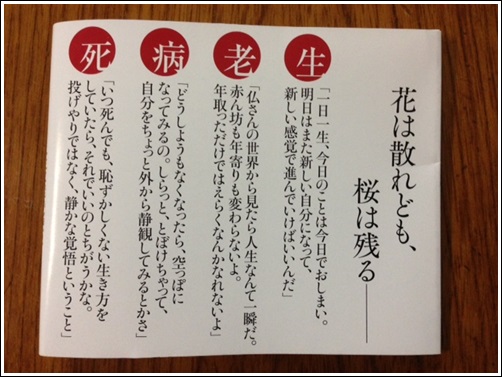 花は散れども、
桜は残る――
生
「一日一生、今日のことは今日でおしまい。
明日はまた新しい自分になって、
新しい感覚で進んでいけばいいんだ」
老
「仏さんの世界から見たら人生なんて一瞬だ。
赤ん坊も年寄りも変わらないよ。
年取っただけではえらくなんかなれないよ」
病
「どうしようもなくなったら、空っぽに
なってみるの。しらっと、とぼけちゃって、
自分をちょっと外から静観してみるとかさ」
死
「いつ死んでも、恥ずかしくない生き方を
していたら、それでいいのとちがうかな。
投げやりではなく、静かな覚悟ということ」